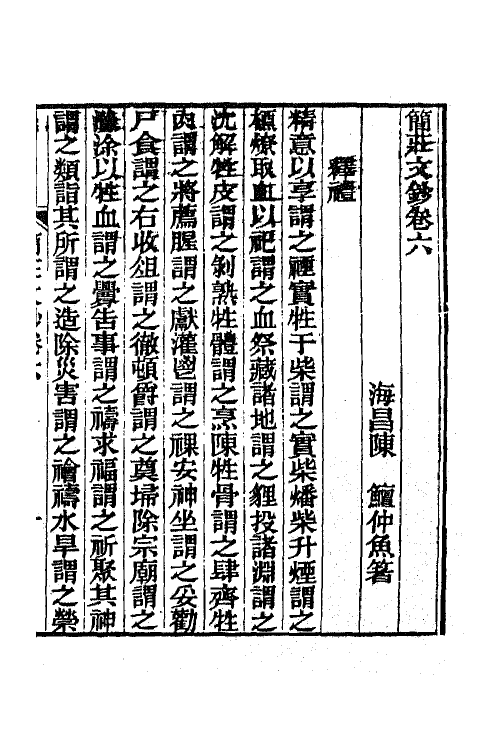 簡莊文鈔卷六
海昌陳　鱣仲魚著
釋禮
精意以享謂之禋實牲于柴謂之實柴燔柴升煙謂之
槱燎取血以祀謂之血祭藏諸地謂之貍投諸淵謂之
沈解牲皮謂之剝熟牲體謂之烹陳牲骨謂之肆齊牲
肉謂之將薦腥謂之獻灌鬯謂之祼安神坐謂之妥勸
尸食謂之右收俎謂之徹頓爵謂之奠埽除宗廟謂之
涂以牲血謂之釁告事謂之禱求福謂之祈聚其神
謂之類詣其所謂之造除災害謂之禬禱水旱謂之禜